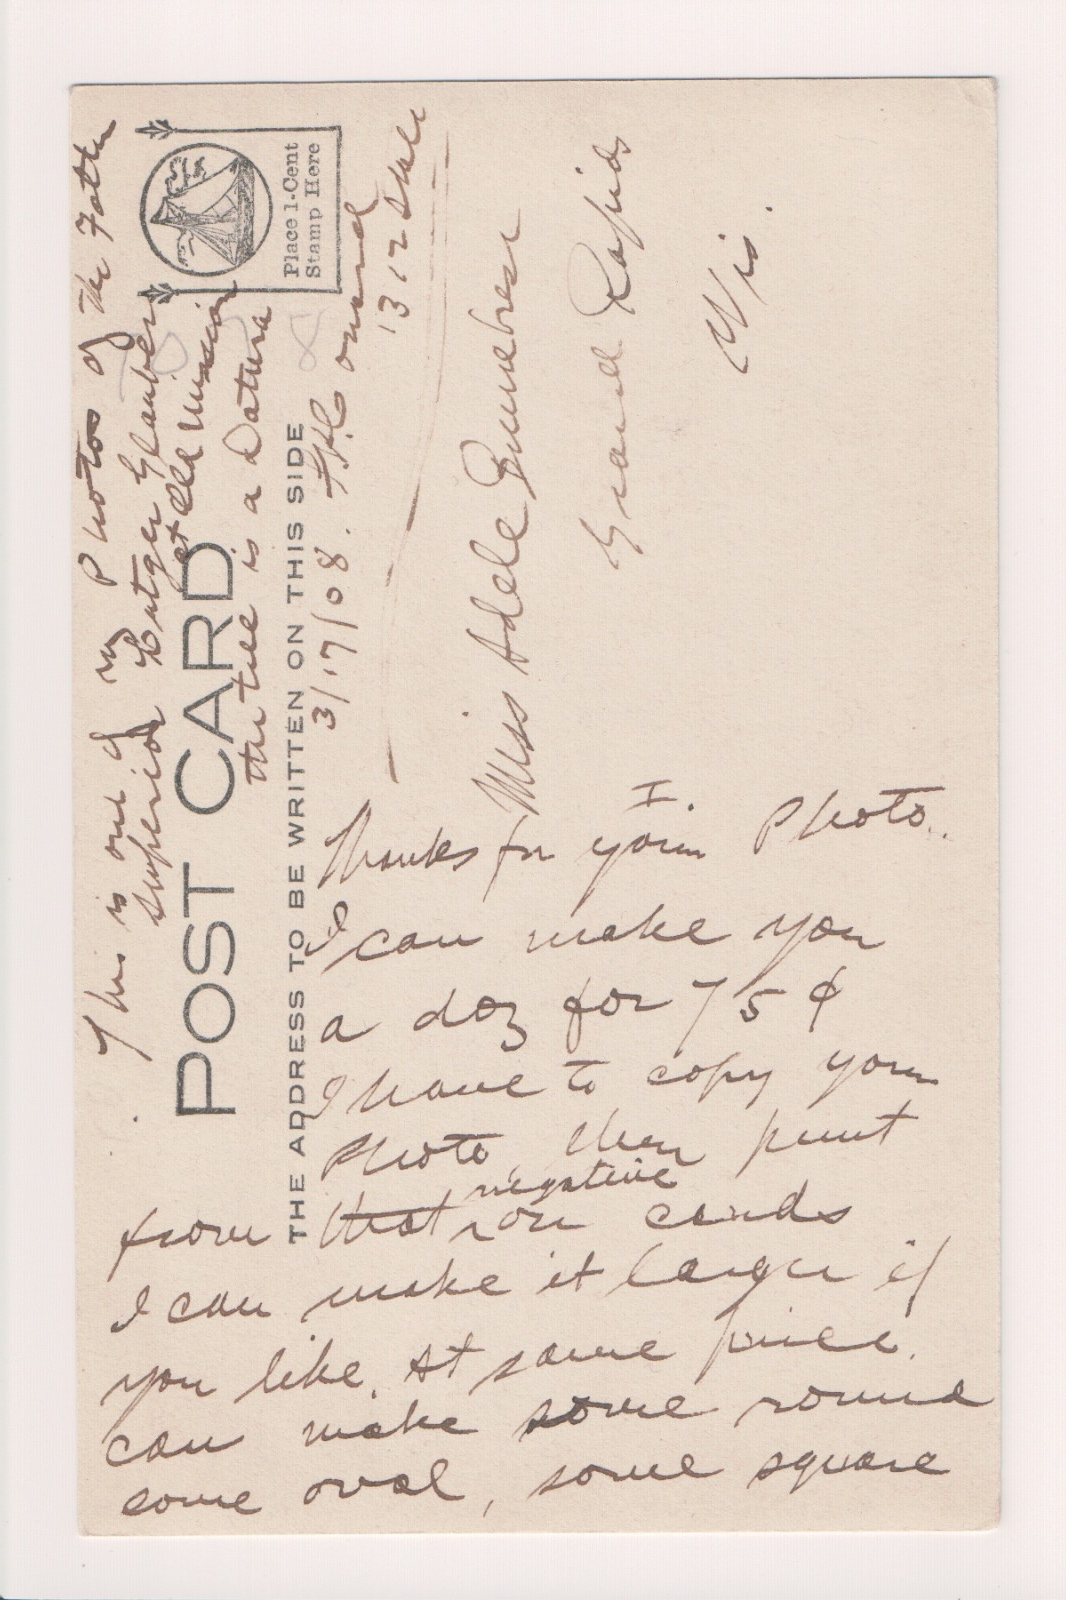 This is one of my Photos of the Father
superior Rutger Glauben
at old Mission
the tree is a Datura
POST CARD
Place 1-Cent
Stamp Here
THE ADDRESS TO BE WRITTEN ON THIS SIDE
3/17/08.
312 State
Miss Adele
Grand Rapids
Wis.
Thanks for your Photo.
I can make you
a doz for 75¢
I have to copy your
Photo, then print
from that negative on cards
I can make it larger if
you like. At same price.
can make some round
some oval, some square